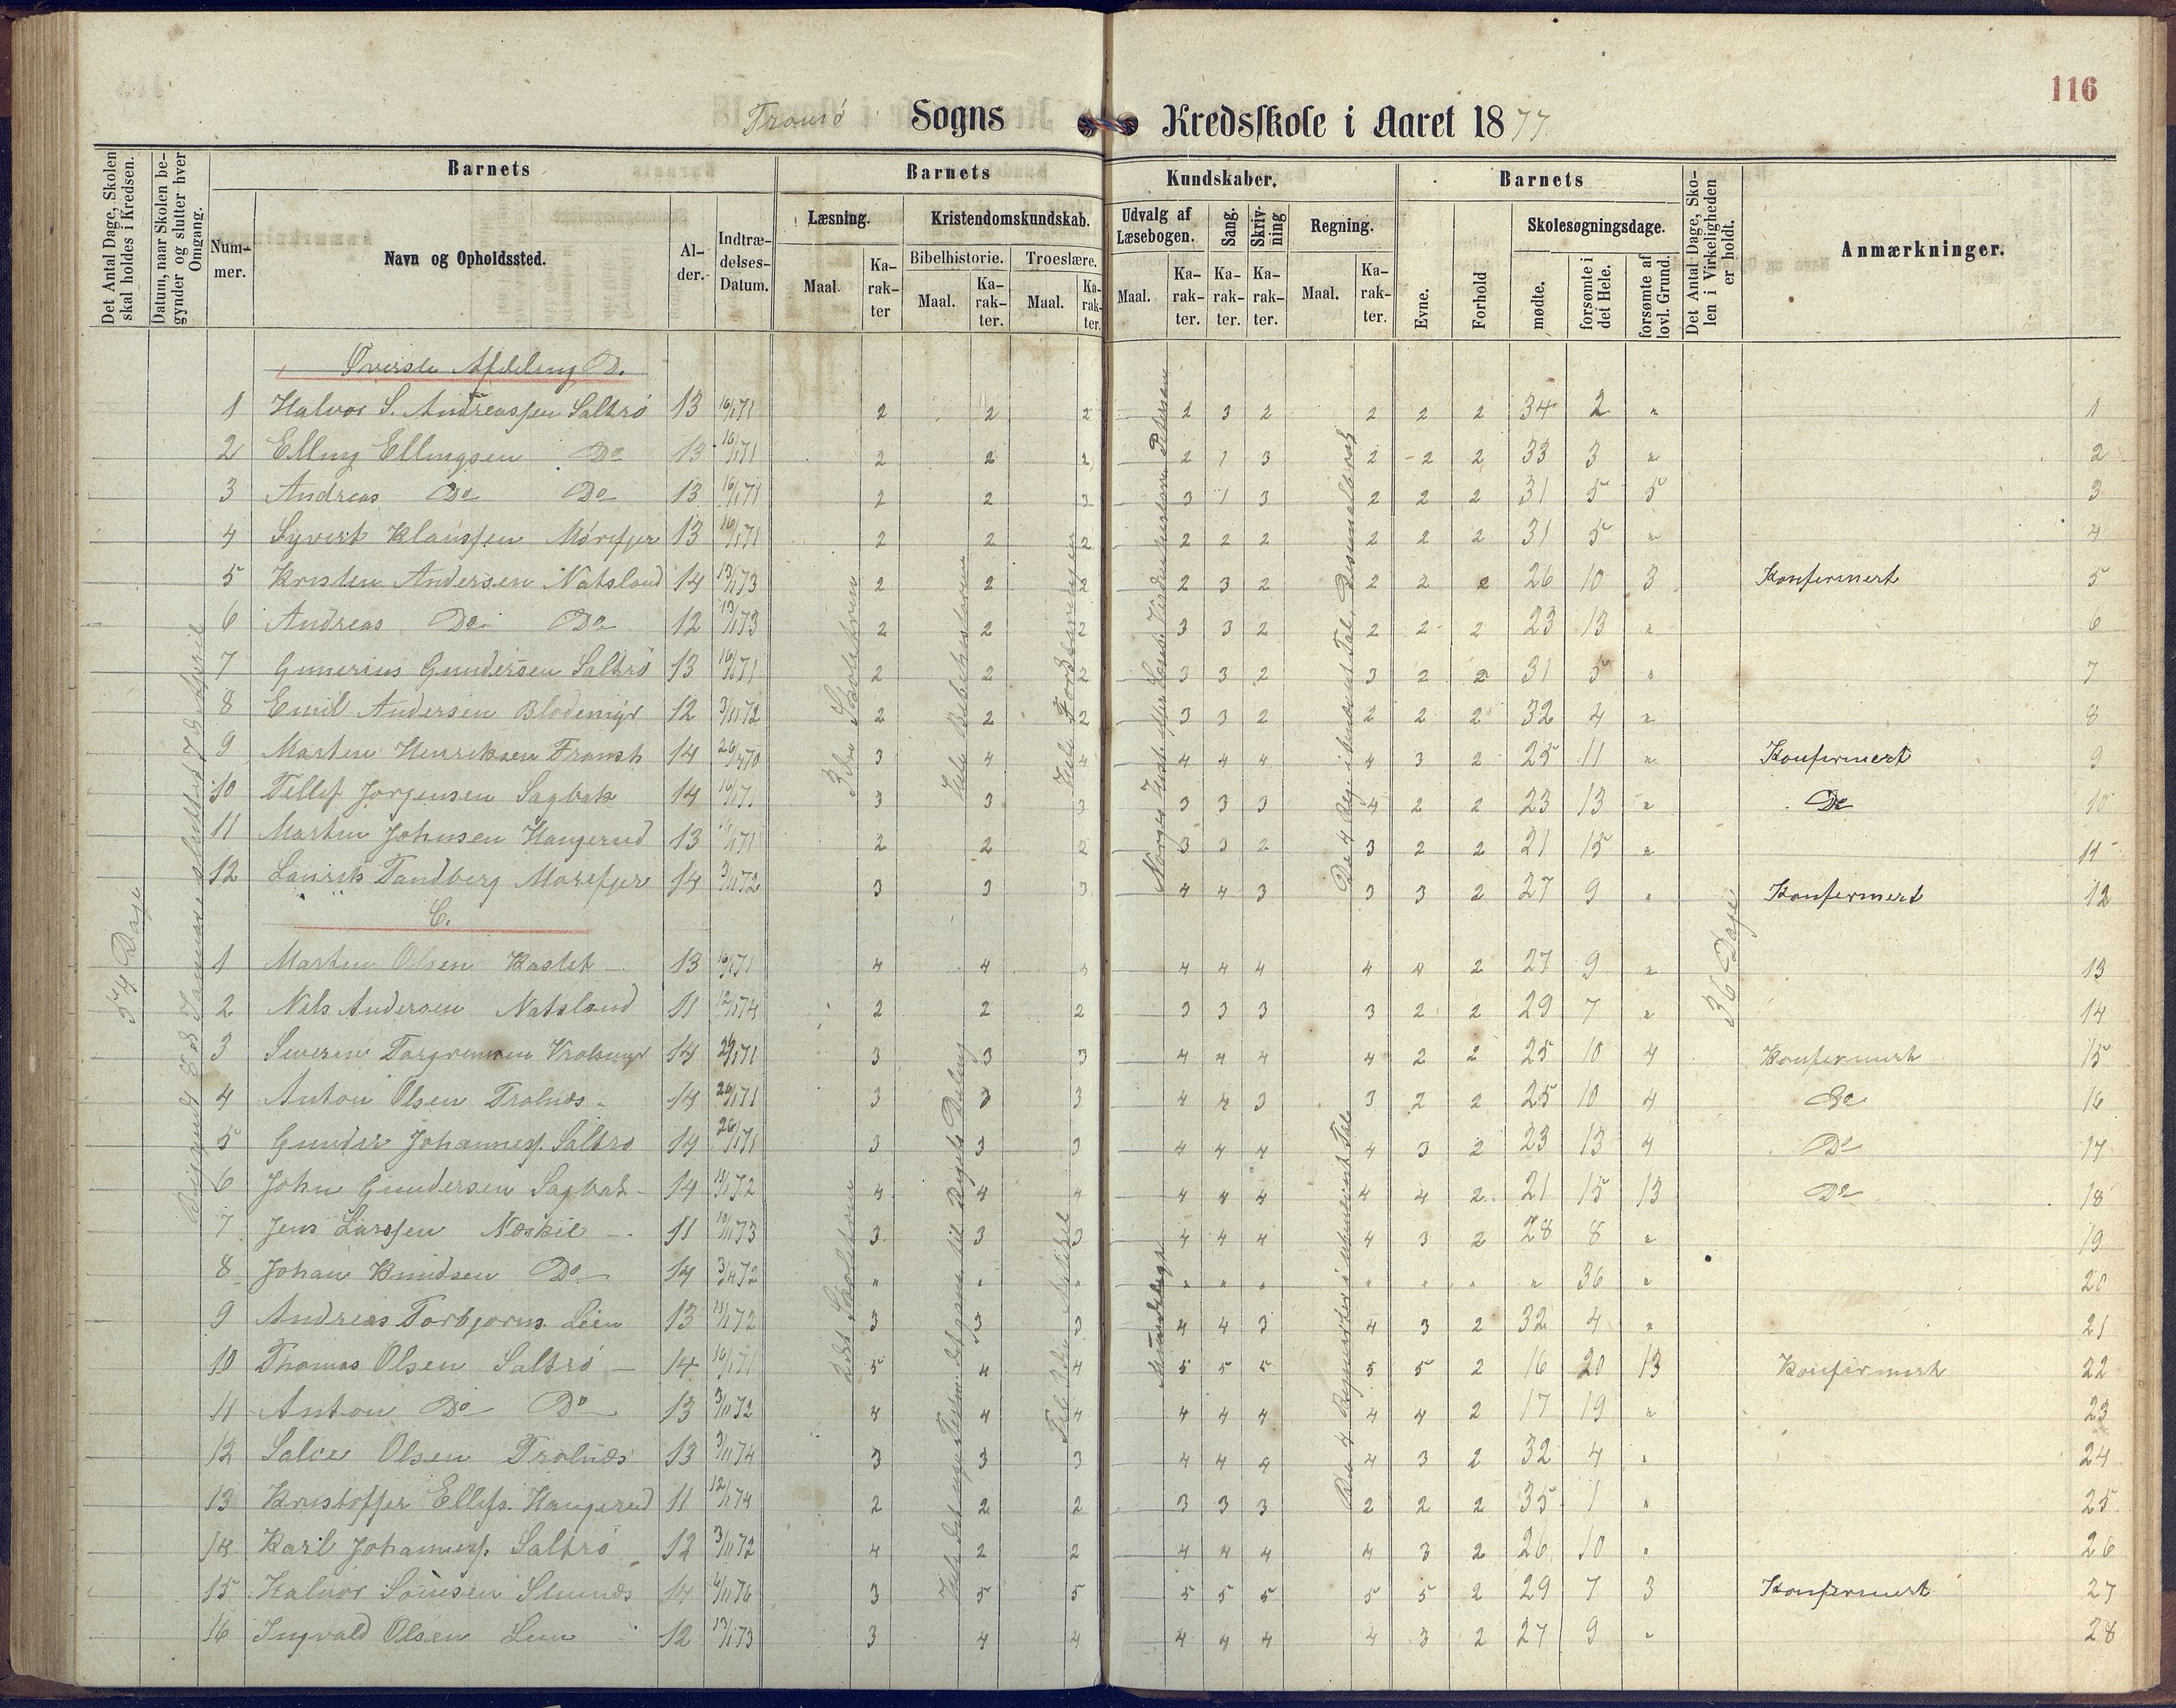 116
Tromö Sogns Kredsskole i Aaret 1877
Det Antal Dage, Skolen skal holdes i Kredsen.
Datum, naar Skolen begynder og slutter hver Omgang.
Barnets
Nummer.
Navn og Opholdssted.
Alder.
Indtrædelses-Datum.
Barnets Kundskaber.
Læsning.
Maal.
Karakter
Kristendomskundskab.
Bibelhistorie.
Maal.
Karakter.
Troeslære.
Maal.
Karakter.
Udvalg af Læsebogen.
Maal.
Karakter.
Sang.
Karakter.
Skrivning
Karakter.
Regning.
Maal.
Karakter.
Barnets
Evne.
Forhold
Skolesøgningsdage.
mødte.
forsømte i det Hele.
forsømte af lovl. Grund.
Det Antal Dage, Skolen i Virkeligheden er holdt.
Anmærkninger.
54 Dage
36 Dage
Øverste Afdeling D.
1 Halvor S. Andreassen Saltrö 13 16/1 71 2 2 2 2 3 2 2 2 2 34 2 " 1
2 Elling Ellingsen Do 13 16/1 71 2 2 2 2 1 3 2 2 2 33 3 " 2
3 Andreas Do Do 13 16/1 71 2 2 3 3 1 3 2 2 2 31 5 5 3
4 Syvert Klaussen Mörefjer 13 16/1 71 2 2 2 2 2 2 2 2 2 31 5 " 4
5 Kristen Andersen Natsland 14 13/1 73 2 2 2 2 3 2 2 2 2 26 10 3 Konfirmert 5
6 Andreas Do Do 12 13/1 73 2 2 2 3 3 2 2 2 2 23 13 " 6
7 Gunerius Gundersen Saltrö 13 16/1 71 2 2 2 3 3 2 3 2 2 31 5 " 7
8 Emil Andersen Blodemyr 12 3/11 72 2 2 2 3 3 2 2 2 2 32 4 " 8
9 Marten Henriksen 14 3 4 4 4 4 4 4 3 2 25 11 " Konfirmert 9
10 Tellef Jörgensen Sagbak 14 16/1 71 3 3 3 3 3 3 4 2 2 23 13 " Do 10
11 Martin Johnsen Haugerud 13 2 2 2 3 3 2 3 2 2 21 15 " 11
12 Laurits Tandberg Mörefjer 14 3/11 72 3 3 3 4 4 3 3 3 2 27 9 " Konfirmert 12
C.
1 Marten Olsen Kastet 13 16/1 71 4 4 4 4 4 4 4 4 2 27 9 " 13
2 Nils Andersen Natsland 11 12/1 74 2 2 2 3 3 3 3 2 2 29 7 " 14
3 Severin 14 3 3 3 4 4 4 4 2 2 25 10 4 Konfirmert 15
4 Anton Olsen Trolnæs 14 26/1 71 3 3 3 4 4 3 3 2 2 25 10 4 Do 16
5 Gunder Johanness. Saltrö 14 26/1 71 3 3 3 4 4 4 4 3 2 23 13 4 Do 17
6 John Gundersen Sagbak 14 4 4 4 4 4 4 4 4 2 21 15 13 Do 18
7 Jens Larssen Næskil 11 3 3 3 4 4 4 4 3 2 28 8 " 19
8 Johan Knudsen Do 14 3/11 72 " " " " " " " " " 36 " 20
9 Andreas Torbjörns. Lien 13 3 3 3 4 4 3 4 3 2 32 4 " 21
10 Thomas Olsen Saltrö 14 16/1 71 5 4 4 5 5 5 5 5 2 16 20 13 Konfirmert 22
11 Anton Do Do 13 3/11 72 4 4 4 4 4 4 4 4 2 17 19 " 23
12 Salve Olsen Trolnæs 13 3/11 74 3 3 3 4 4 4 4 3 2 32 4 " 24
13 Kristoffer Ellefs. Haugerud 11 12/1 74 2 2 2 3 3 3 2 2 2 35 1 " 25
14 Karl Johanness. Saltrö 12 3/11 72 4 2 2 4 4 4 4 3 2 26 10 " 26
15 Halvor 14 3 5 5 5 5 5 5 5 2 29 7 3 Konfirmert 27
16 Ingvald Olsen Lien 12 13/1 73 3 4 4 4 4 4 4 3 2 27 9 " 28